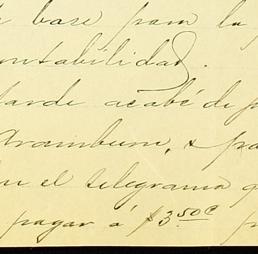 base para la
contabilidad.
tarde acabé de
Aramburu, &
el telegrama
pagar á $3.50c